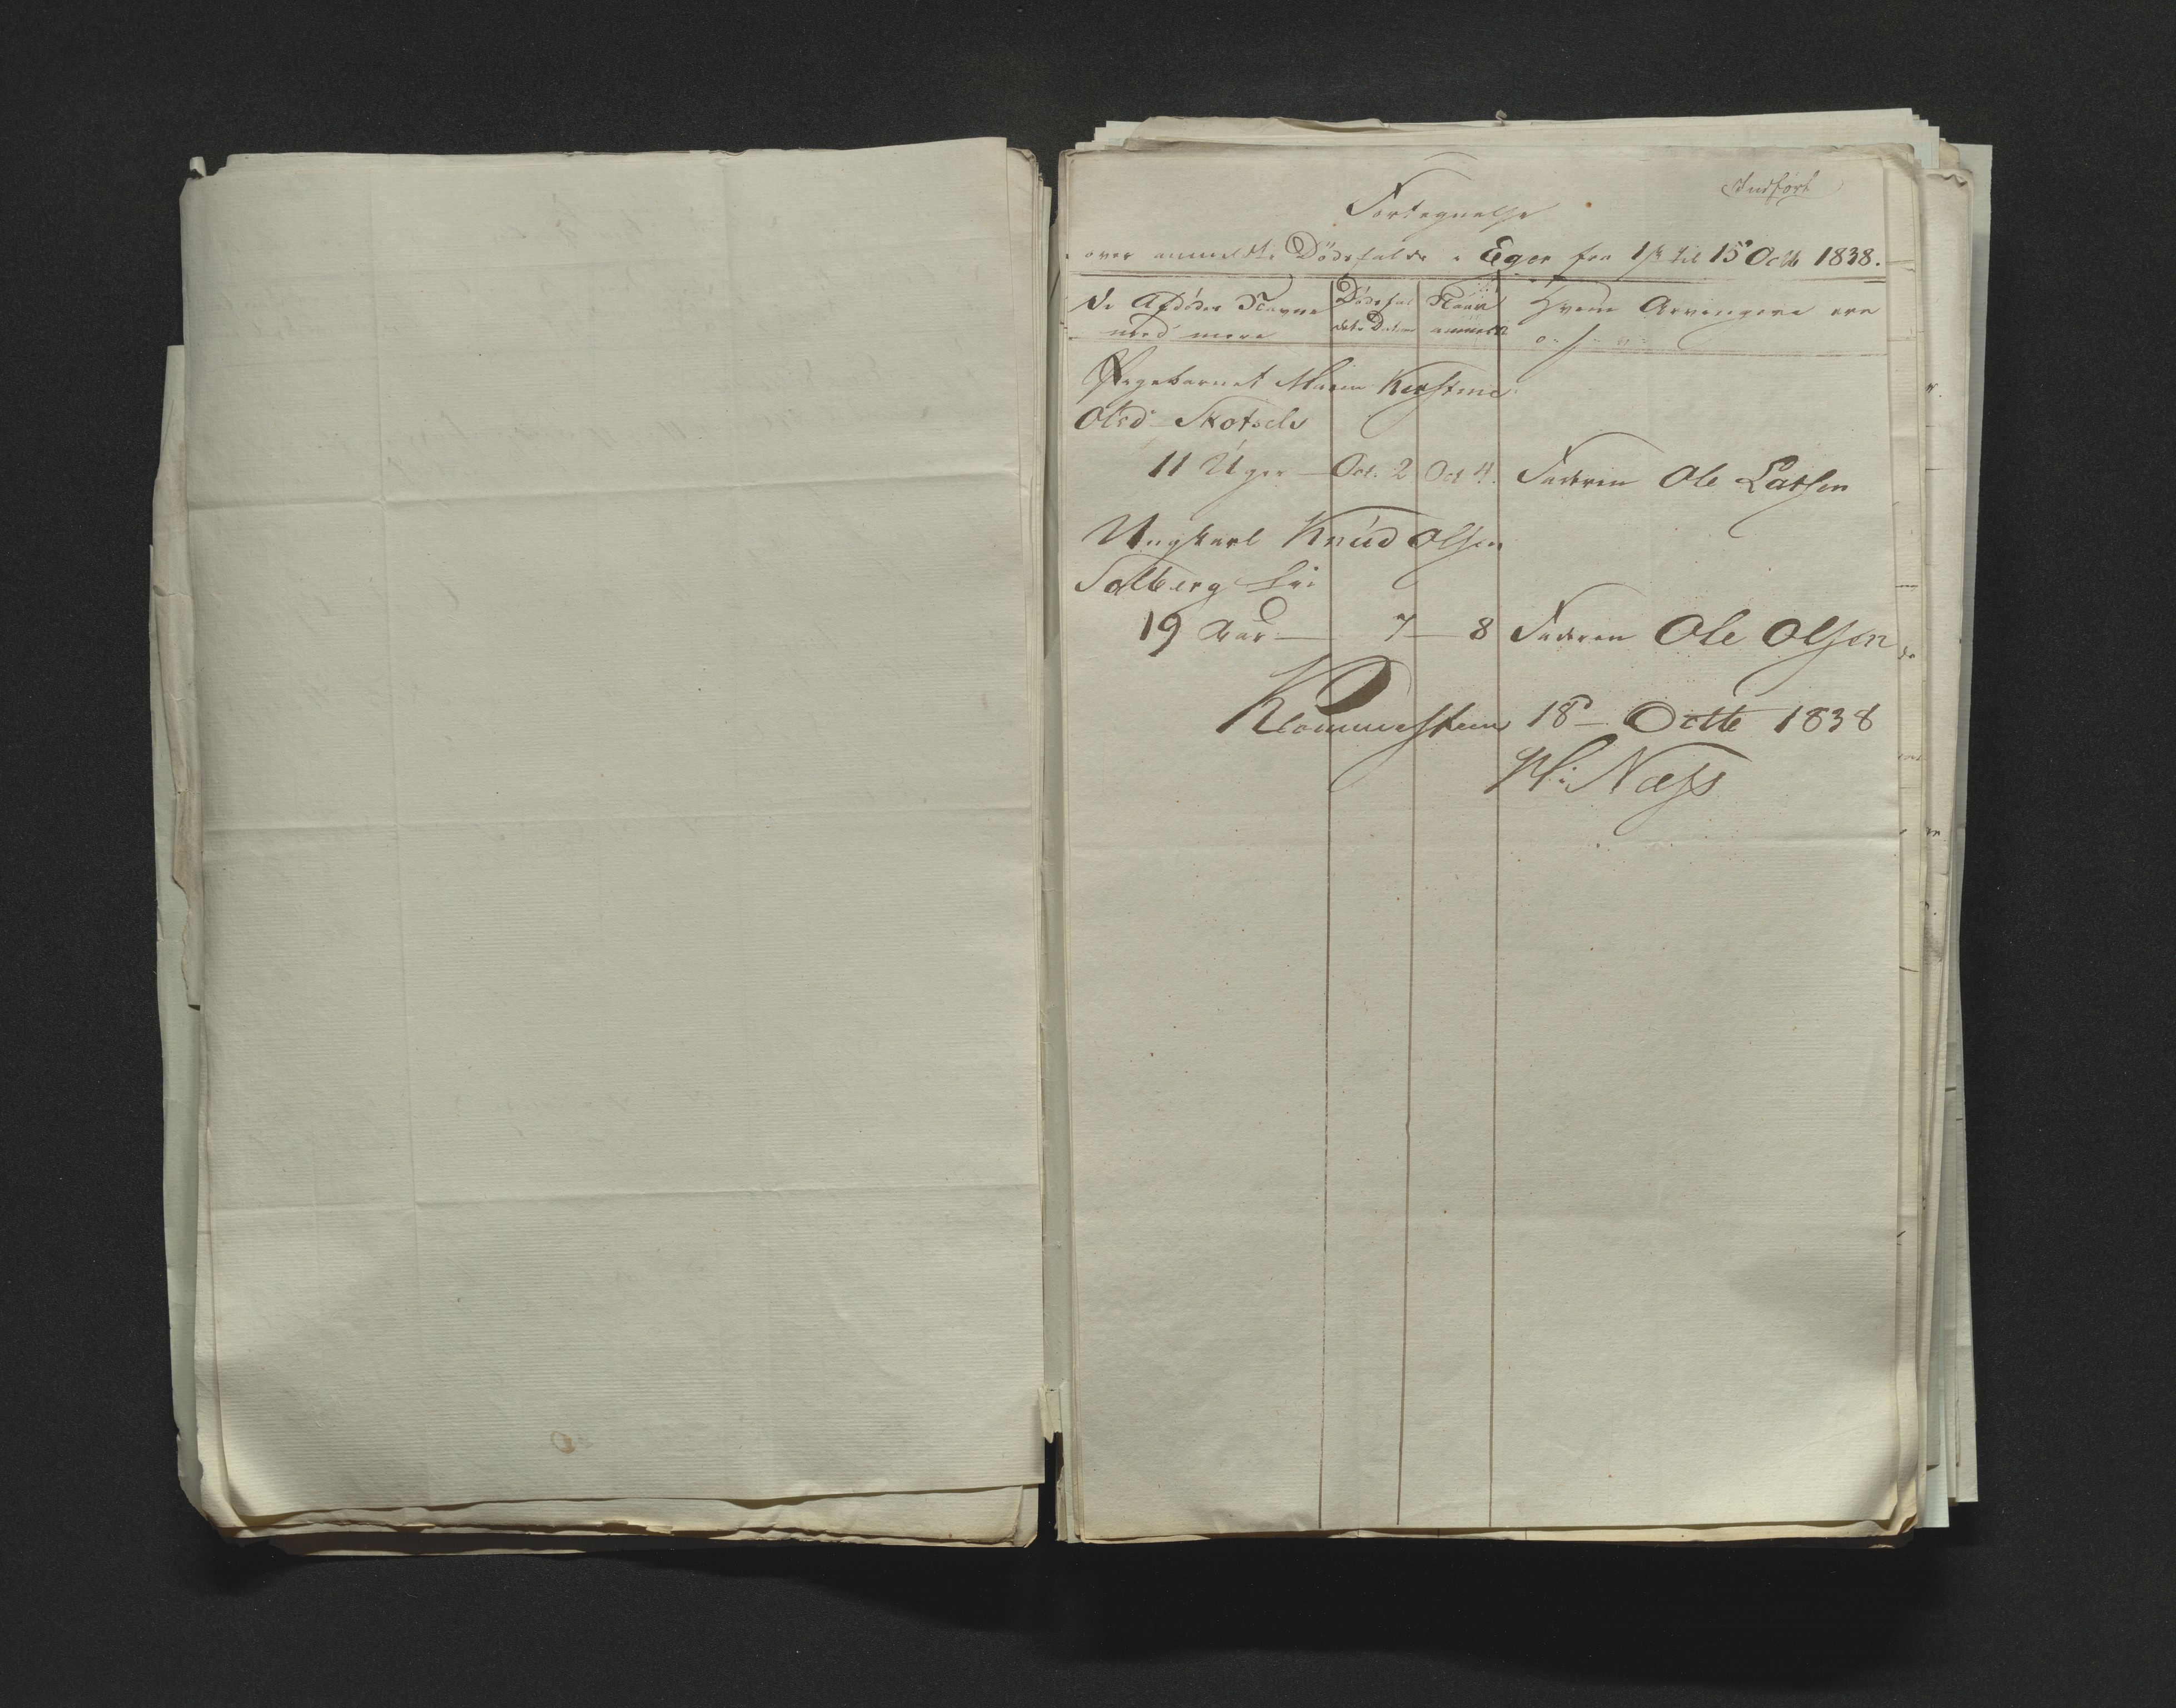 Indført
Fortegnelse
over anmeldte Dødsfalde i Eger fra 1ste til 15de Octb 1838.
De Afdødes Navne
med mere
Dødsfal
dets Datum
Naar
anmeldt
Hvem Arvingere ere
Pigebarnet Maren Kirstine
Olsd Skotsele
11 Uger — Oct. 2 Oct 4. Faderen Ole Larsen
Ungkarl Knud Olsen
Solberg
19 Aar — 7 — 8 Faderen Ole Olsen
18de Octbr 1838
Næss